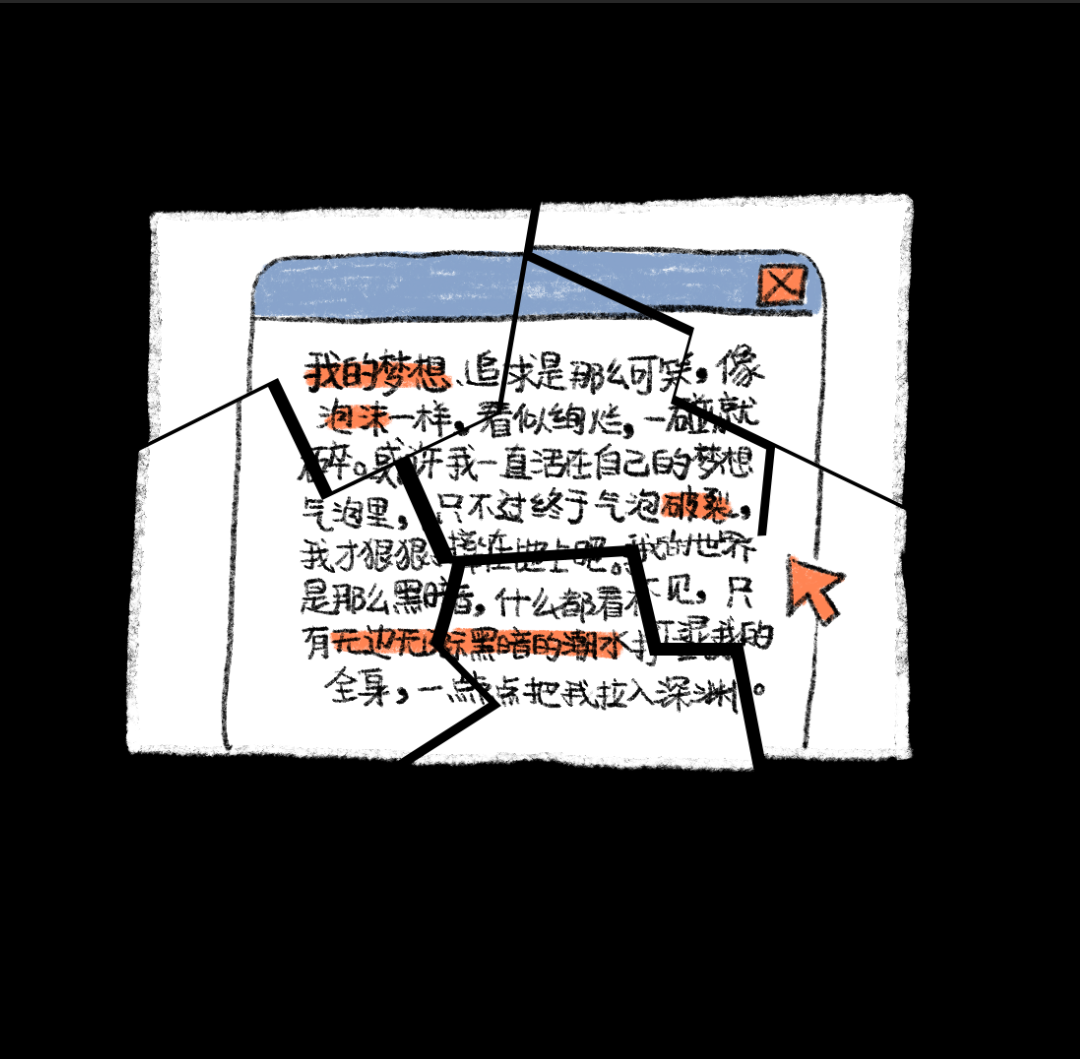 我的梦想、追求是那么可笑，像
泡沫一样，看似绚烂，一碰就
破碎。或许我一直活在自己的梦想
气泡里，只不过终于气泡破裂，
我才狠狠摔在地上吧。我的世界
是那么黑暗，什么都看不见，只
有无边无际黑暗的潮水打湿我的
全身，一点点把我拉入深渊。